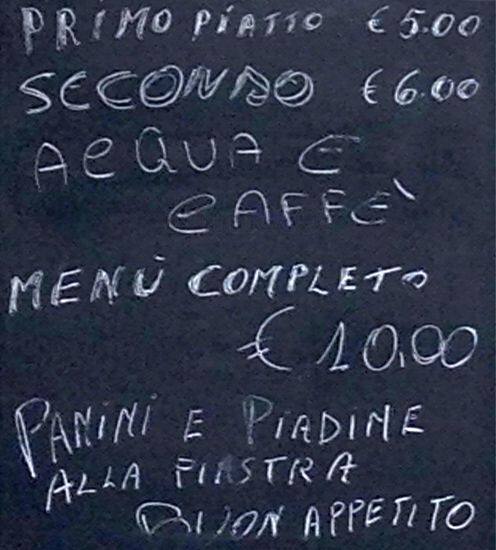 PRIMO PIATTO € 5.00
SECONDO € 6.00
ACQUA E
CAFFÈ
MENÙ COMPLETO
€ 10,00
PANINI E PIADINE
ALLA PIASTRA
BUON APPETITO